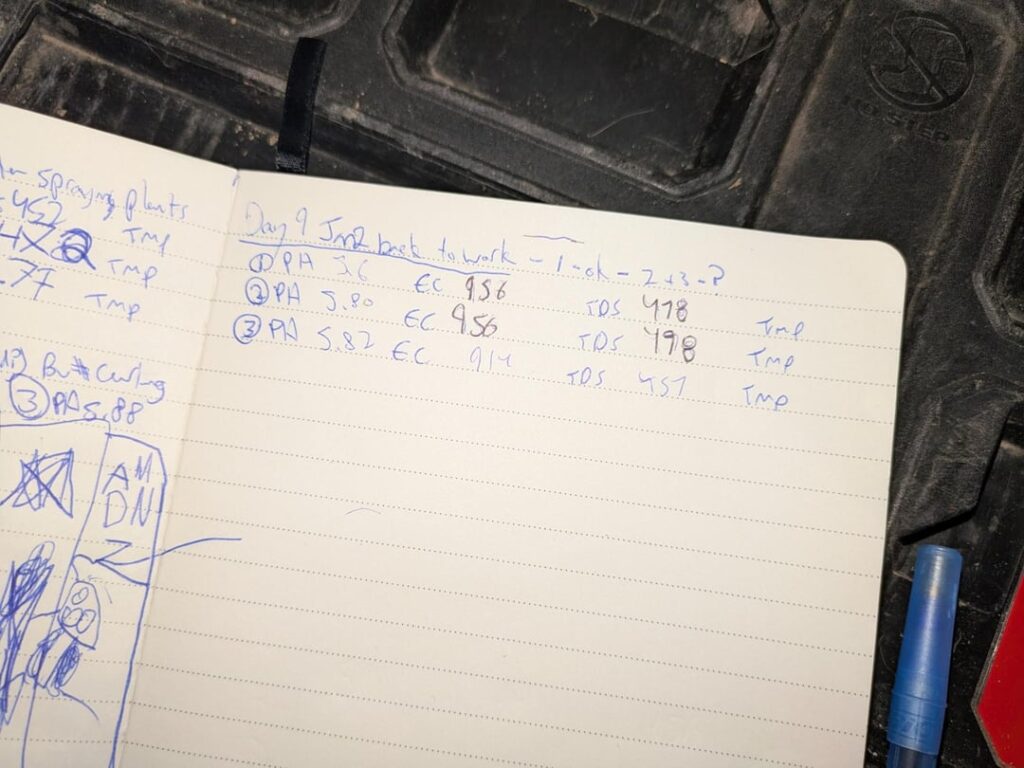 spraying plants
452
Tmp
Tmp
.77 Tmp
Curling
③ PH 5.88
AM
DN
Day 9 Jan 2 back to work - 1 - ok - 2 + 3 - ?
① PH 5.6 EC 956 TDS 478 Tmp
② PH 5.80 EC 956 TDS 498 Tmp
③ PH 5.82 EC 914 TDS 457 Tmp